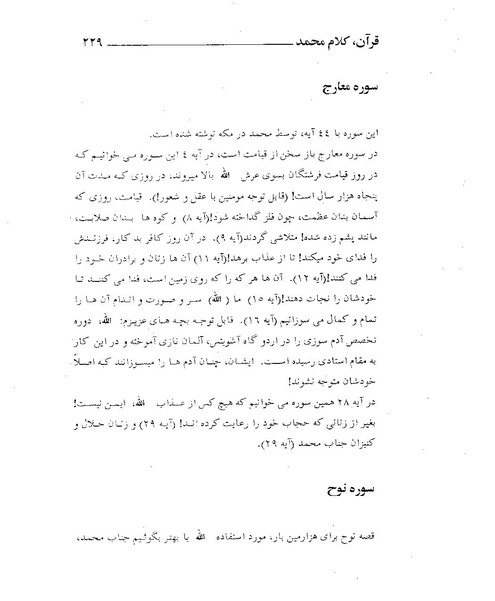 قرآن، کلام محمد ۲۲۹
سوره معارج
این سوره با ۴۴ آیه، توسط محمد در مکه نوشته شده است.
در سوره معارج باز سخن از قیامت است، در آیه ۴ این سوره می خوانیم که
در روز قیامت فرشتگان بسوی عرش الله بالا میروند، در روزی که مدت آن
پنجاه هزار سال است! (قابل توجه مومنین با عقل و شعور!). قیامت، روزی که
آسمان بدان عظمت، چون فلز گداخته شود!(آیه ۸) و کوه ها بدان صلابت،
مانند پشم زده شده! متلاشی گردند(آیه ۹). در آن روز کافر بد کار، فرزندش
را فدای خود میکند! تا از عذاب برهد!(آیه ۱۱) آن ها زنان و برادران خود را
فدا می کنند!(آیه ۱۲). آن ها هر که را که روی زمین است، فدا می کنند تا
خودشان را نجات دهند!(آیه ۱۵) ما (الله) سر و صورت و اندام آن ها را
تمام و کمال می سوزانیم (آیه ۱۶). قابل توجه بچه های عزیزم: الله، دوره
تخصص آدم سوزی را در اردو گاه آشویتس، آلمان نازی آموخته و در این کار
به مقام استادی رسیده است. ایشان، چنان آدم ها را میسوزانند که اصلاً
خودشان متوجه نشوند!
در آیه ۲۸ همین سوره می خوانیم که هیچ کس از عذاب الله، ایمن نیست!
بغیر از زنانی که حجاب خود را رعایت کرده اند! (آیه ۲۹) و زنان حلال و
کنیزان جناب محمد (آیه ۲۹).
سوره نوح
قصه نوح برای هزارمین بار، مورد استفاده الله یا بهتر بگوئیم جناب محمد،